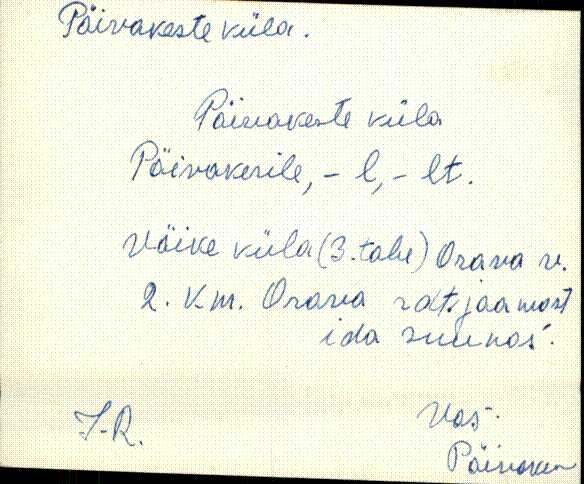 Päivakeste küla.
Päivakeste küla
Päivakesile, - l, - lt.
Väike küla (3. talu) Orava v.
2. Km. Orava rdt. jaamast
ida suunas.
J-R.
Vas.